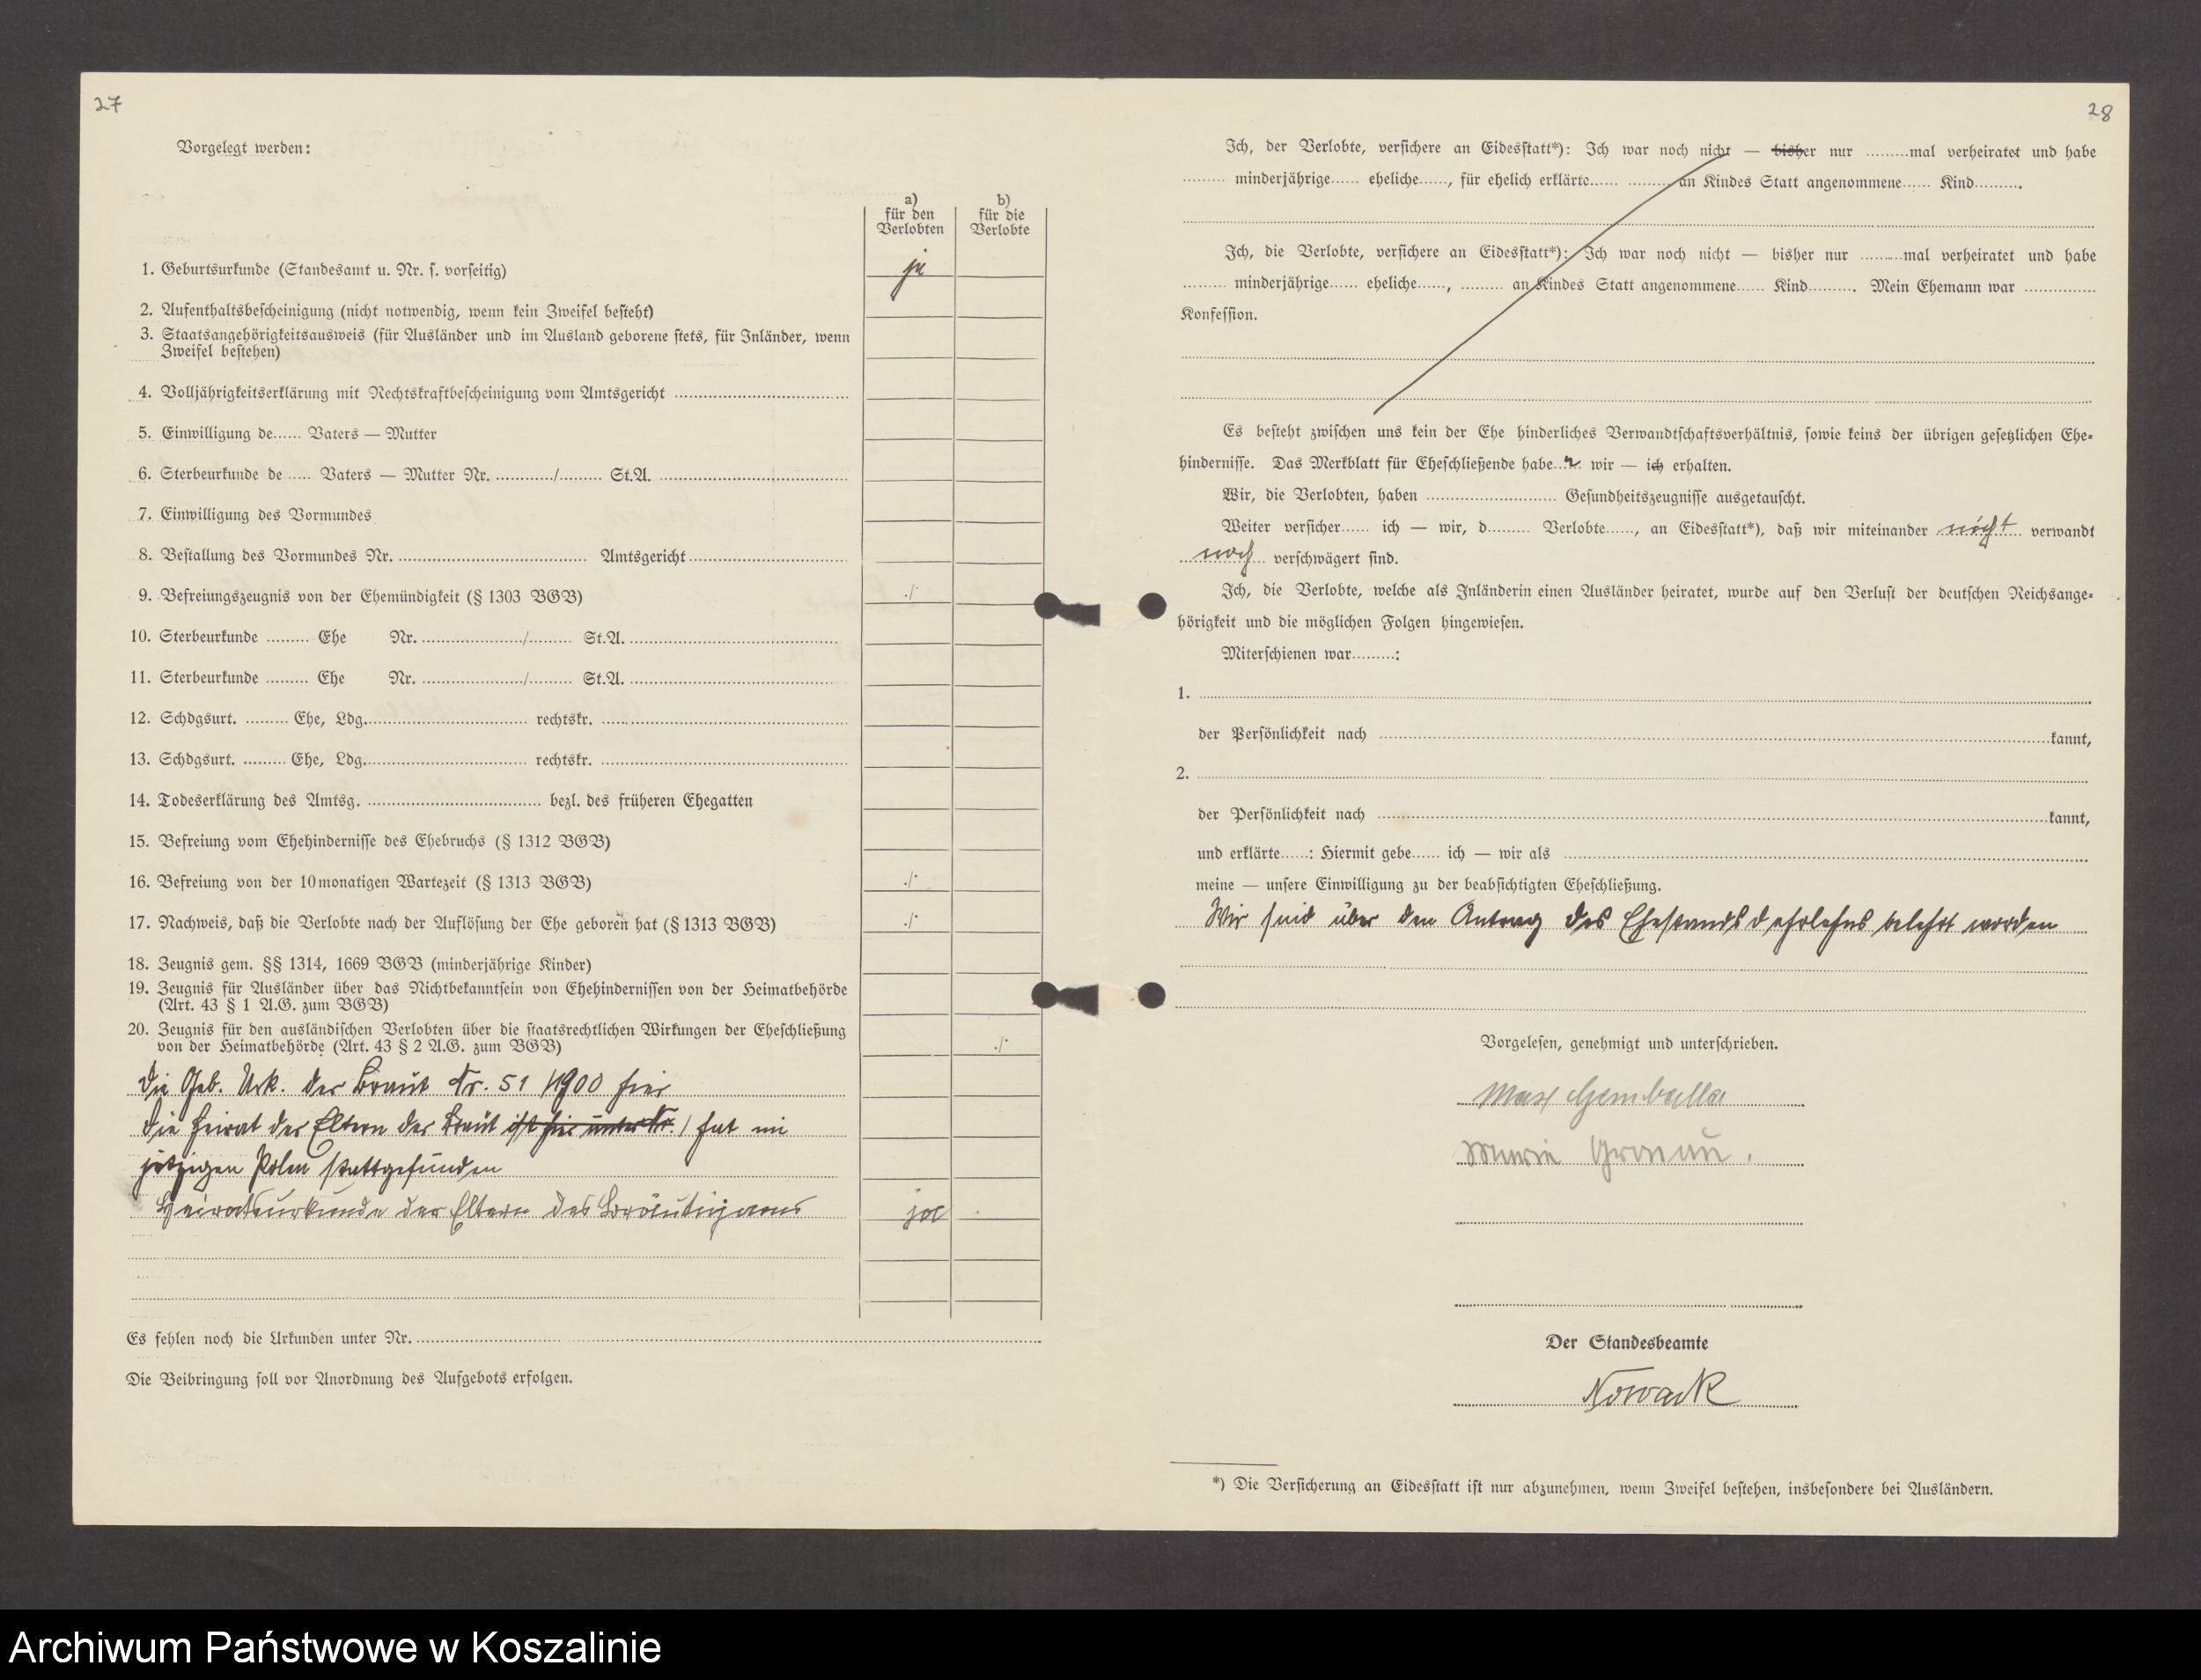 27
Vorgelegt werden:
a) für den Verlobten
b) für die Verlobte
1. Geburtsurkunde (Standesamt u. Nr. s. vorseitig) ja
2. Aufenthaltsbescheinigung (nicht notwendig, wenn kein Zweifel besteht)
3. Staatsangehörigkeitsausweis (für Ausländer und im Ausland geborene stets, für Inländer, wenn
Zweifel bestehen)
4. Volljährigkeitserklärung mit Rechtskraftbescheinigung vom Amtsgericht ........
5. Einwilligung de...... Vaters — Mutter
6. Sterbeurkunde de ..... Vaters — Mutter Nr. ............/......... St.A. ........
7. Einwilligung des Vormundes
8. Bestallung des Vormundes Nr. ........ Amtsgericht ........
9. Befreiungszeugnis von der Ehemündigkeit (§ 1303 BGB) ./.
10. Sterbeurkunde ......... Ehe Nr. ........./......... St.A. ........
11. Sterbeurkunde ......... Ehe Nr. ........./......... St.A. ........
12. Schdgsurt. ......... Ehe, Ldg. ........ rechtskr. ........
13. Schdgsurt. ......... Ehe, Ldg. ........ rechtskr. ........
14. Todeserklärung des Amtsg. ........ bezl. des früheren Ehegatten
15. Befreiung vom Ehehindernisse des Ehebruchs (§ 1312 BGB)
16. Befreiung von der 10monatigen Wartezeit (§ 1313 BGB) ./.
17. Nachweis, daß die Verlobte nach der Auflösung der Ehe geboren hat (§ 1313 BGB) ./.
18. Zeugnis gem. §§ 1314, 1669 BGB (minderjährige Kinder)
19. Zeugnis für Ausländer über das Nichtbekanntsein von Ehehindernissen von der Heimatbehörde
(Art. 43 § 1 A.G. zum BGB)
20. Zeugnis für den ausländischen Verlobten über die staatsrechtlichen Wirkungen der Eheschließung
von der Heimatbehörde (Art. 43 § 2 A.G. zum BGB) ./.
Die Geb. Urk. der Braut Nr. 51/1900 hier
Die Heirat der Eltern der Braut ist hier unter Nr. / hat im
jetzigen Polen stattgefunden
Heiratsurkunde der Eltern des Bräutigams ja
Es fehlen noch die Urkunden unter Nr. ........
Die Beibringung soll vor Anordnung des Aufgebots erfolgen.
28
Ich, der Verlobte, versichere an Eidesstatt*): Ich war noch nicht — bisher nur .........mal verheiratet und habe
......... minderjährige...... eheliche......, für ehelich erklärte...... ......... an Kindes Statt angenommene...... Kind.........
Ich, die Verlobte, versichere an Eidesstatt*): Ich war noch nicht — bisher nur .........mal verheiratet und habe
......... minderjährige...... eheliche......, ......... an Kindes Statt angenommene...... Kind.......... Mein Ehemann war ...............
Konfession.
Es besteht zwischen uns kein der Ehe hinderliches Verwandtschaftsverhältnis, sowie keins der übrigen gesetzlichen Ehe-
hindernisse. Das Merkblatt für Eheschließende habe n wir — ich erhalten.
Wir, die Verlobten, haben ........ Gesundheitszeugnisse ausgetauscht.
Weiter versicher...... ich — wir, d......... Verlobte......, an Eidesstatt*), daß wir miteinander nicht verwandt
noch verschwägert sind.
Ich, die Verlobte, welche als Inländerin einen Ausländer heiratet, wurde auf den Verlust der deutschen Reichsange-
hörigkeit und die möglichen Folgen hingewiesen.
Miterschienen war.........:
1. ........
der Persönlichkeit nach ........kannt,
2. ........
der Persönlichkeit nach ........kannt,
und erklärte......: Hiermit gebe...... ich — wir als ........
meine — unsere Einwilligung zu der beabsichtigten Eheschließung.
Wir sind über den Antrag des Ehestandsdarlehns belehrt worden
Vorgelesen, genehmigt und unterschrieben.
Max Gemballa
Marie Gronau.
Der Standesbeamte
Nowack
*) Die Versicherung an Eidesstatt ist nur abzunehmen, wenn Zweifel bestehen, insbesondere bei Ausländern.
Archiwum Państwowe w Koszalinie